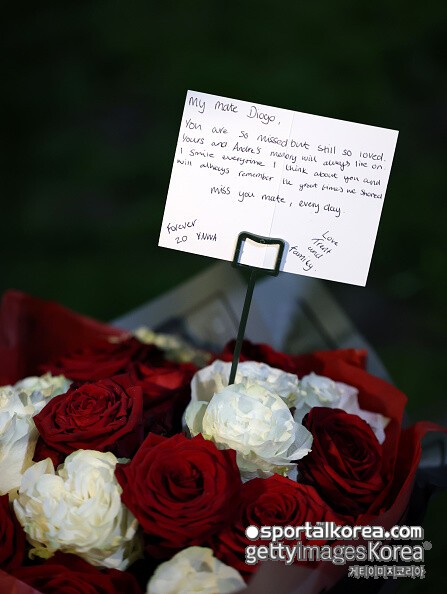 My mate Diogo,
You are so missed but still so loved.
Yours and Andre's memory will always live on.
I smile everytime I think about you and
will always remember the great times we shared
miss you mate, every day.
Forever
20 YNWA
Love
Trent
and
family.
sportalkorea.com
gettyimagesKorea
게티이미지코리아